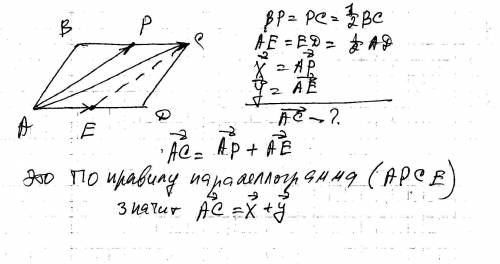 B P C
A E D
BP = PC = 1/2 BC
AE = ED = 1/2 AD
x⃗ = AP⃗
y⃗ = AE⃗
AC⃗ - ?
AC⃗ = AP⃗ + AE⃗
это по правилу параллеллограмма (APCE)
значит AC⃗ = x⃗ + y⃗